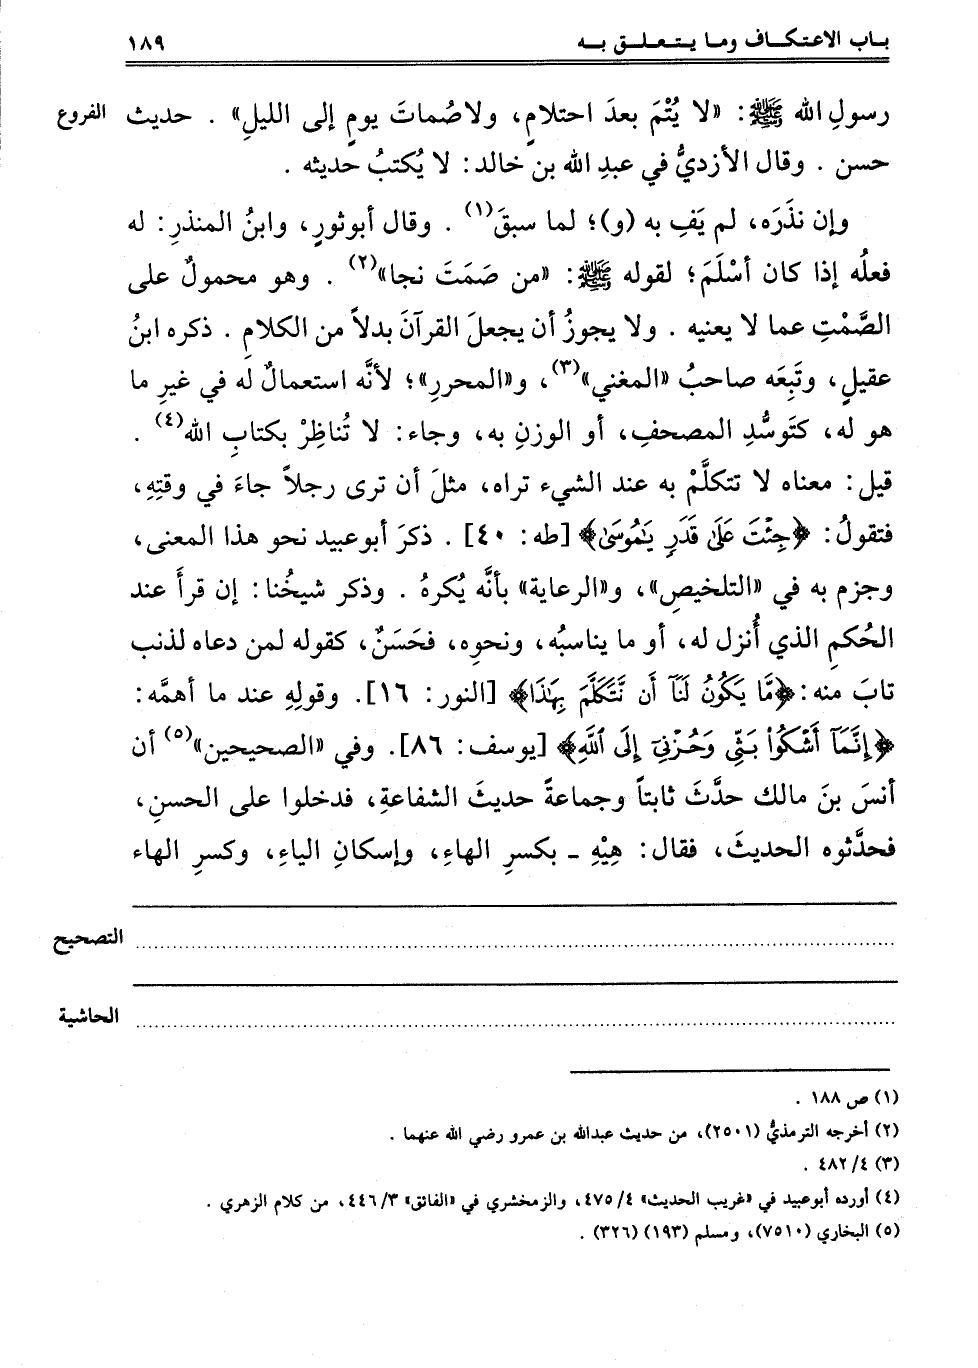 باب الاعتكاف وما يتعلق به ١٨٩
رسولِ الله ﷺ: «لا يُتْمَ بعدَ احتلامٍ، ولاصُماتَ يومٍ إلى الليلِ» . حديث الفروع
حسن . وقال الأزديُّ في عبدِ الله بن خالد: لا يُكتبُ حديثه .
وإن نذَرَه، لم يَفِ به (و)؛ لما سبقَ(١) . وقال أبوثورٍ، وابنُ المنذرِ: له
فعلُه إذا كان أسْلَمَ؛ لقوله ﷺ: «من صَمَتَ نجا»(٢) . وهو محمولٌ على
الصَّمْتِ عما لا يعنيه . ولا يجوزُ أن يجعلَ القرآنَ بدلاً من الكلامِ . ذكره ابنُ
عقيلٍ، وتَبِعَه صاحبُ «المغني»(٣)، و«المحررِ»؛ لأنَّه استعمالٌ له في غيرِ ما
هو له، كتَوسُّدِ المصحفِ، أو الوزنِ به، وجاء: لا تُناظِرْ بكتابِ الله(٤) .
قيل: معناه لا تتكلَّمْ به عند الشيء تراه، مثلَ أن ترى رجلاً جاءَ في وقتِهِ،
فتقولُ: ﴿جِئْتَ عَلَىٰ قَدَرٍ يَٰمُوسَىٰ﴾ [طه: ٤٠] . ذكرَ أبوعبيد نحو هذا المعنى،
وجزم به في «التلخيصِ»، و«الرعاية» بأنَّه يُكرهُ . وذكر شيخُنا: إن قرأَ عند
الحُكمِ الذي أُنزل له، أو ما يناسبُه، ونحوِه، فحَسَنٌ، كقوله لمن دعاه لذنب
تابَ منه: ﴿مَّا يَكُونُ لَنَآ أَن نَّتَكَلَّمَ بِهَٰذَا﴾ [النور: ١٦]. وقولِهِ عند ما أهمَّه:
﴿إِنَّمَآ أَشْكُواْ بَثِّى وَحُزْنِىٓ إِلَى ٱللَّهِ﴾ [يوسف: ٨٦]. وفي «الصحيحين»(٥) أن
أنسَ بنَ مالك حدَّثَ ثابتاً وجماعةً حديثَ الشفاعةِ، فدخلوا على الحسنِ،
فحدَّثوه الحديثَ، فقال: هِيْهِ ـ بكسرِ الهاءِ، وإسكانِ الياءِ، وكسرِ الهاء
التصحيح
الحاشية
(١) ص ١٨٨ .
(٢) أخرجه الترمذيُّ (٢٥٠١)، من حديث عبدالله بن عمرو رضي الله عنهما .
(٣) ٤/ ٤٨٢ .
(٤) أورده أبوعبيد في «غريب الحديث» ٤/ ٤٧٥، والزمخشري في «الفائق» ٣/ ٤٤٦، من كلام الزهري .
(٥) البخاري (٧٥١٠)، ومسلم (١٩٣) (٣٢٦) .